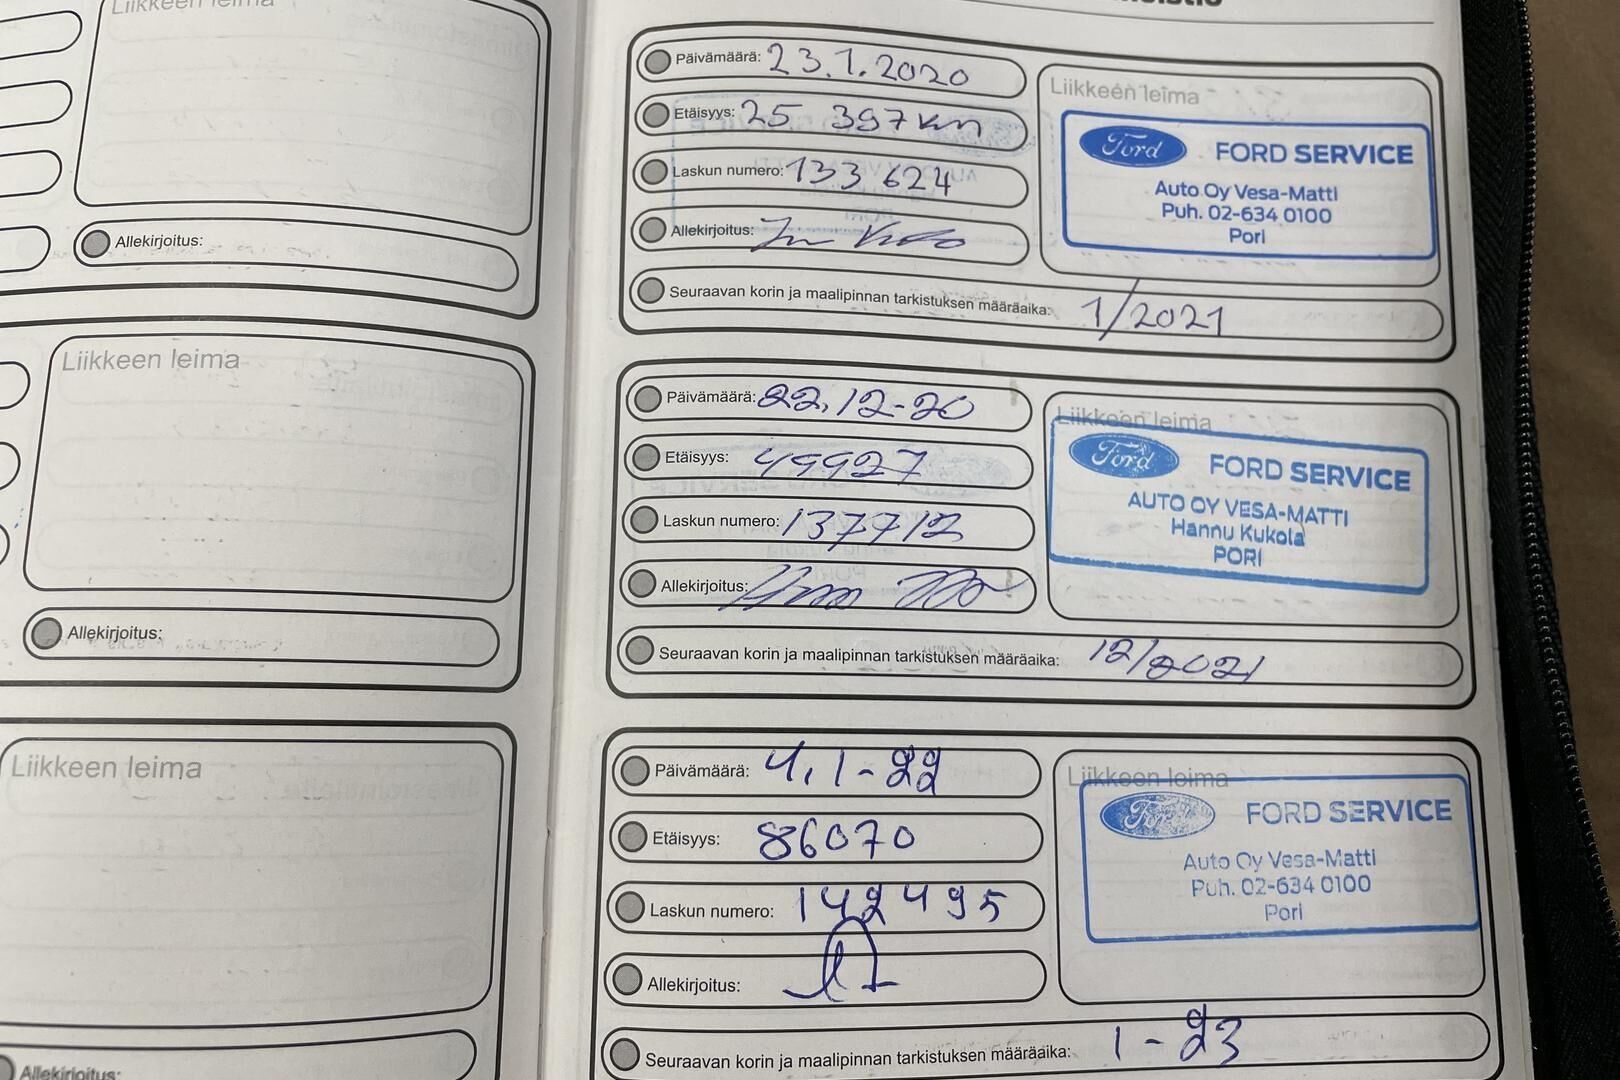 Liikkeen leima
Allekirjoitus:
Liikkeen leima
Allekirjoitus:
Liikkeen leima
Allekirjoitus:
Päivämäärä: 23.1.2020
Etäisyys: 25 397 km
Laskun numero: 133 624
Allekirjoitus:
Seuraavan korin ja maalipinnan tarkistuksen määräaika: 1/2021
Liikkeen leima
Ford FORD SERVICE
Auto Oy Vesa-Matti
Puh. 02-634 0100
Pori
Päivämäärä: 22.12-20
Etäisyys: 49927
Laskun numero: 137712
Allekirjoitus:
Seuraavan korin ja maalipinnan tarkistuksen määräaika: 12/2021
Liikkeen leima
Ford FORD SERVICE
AUTO OY VESA-MATTI
Hannu Kukola
PORI
Päivämäärä: 4.1-22
Etäisyys: 86070
Laskun numero: 142495
Allekirjoitus:
Seuraavan korin ja maalipinnan tarkistuksen määräaika: 1-23
Liikkeen leima
Ford FORD SERVICE
Auto Oy Vesa-Matti
Puh. 02-634 0100
Pori